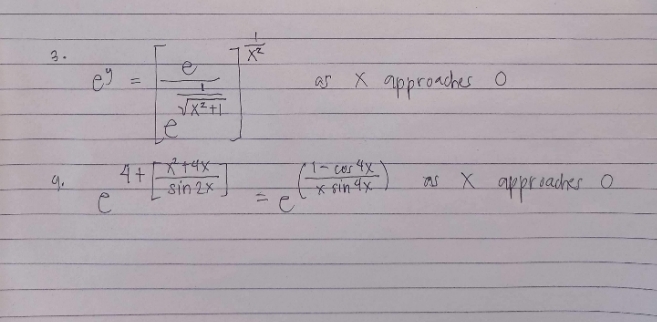 3. e^y = [e / e^(1/√(x²+1))]^(1/x²) as x approaches 0
9. e^(4 + [(x²+4x)/(sin 2x)]) = e^((1 - cos 4x)/(x sin 4x)) as x approaches 0